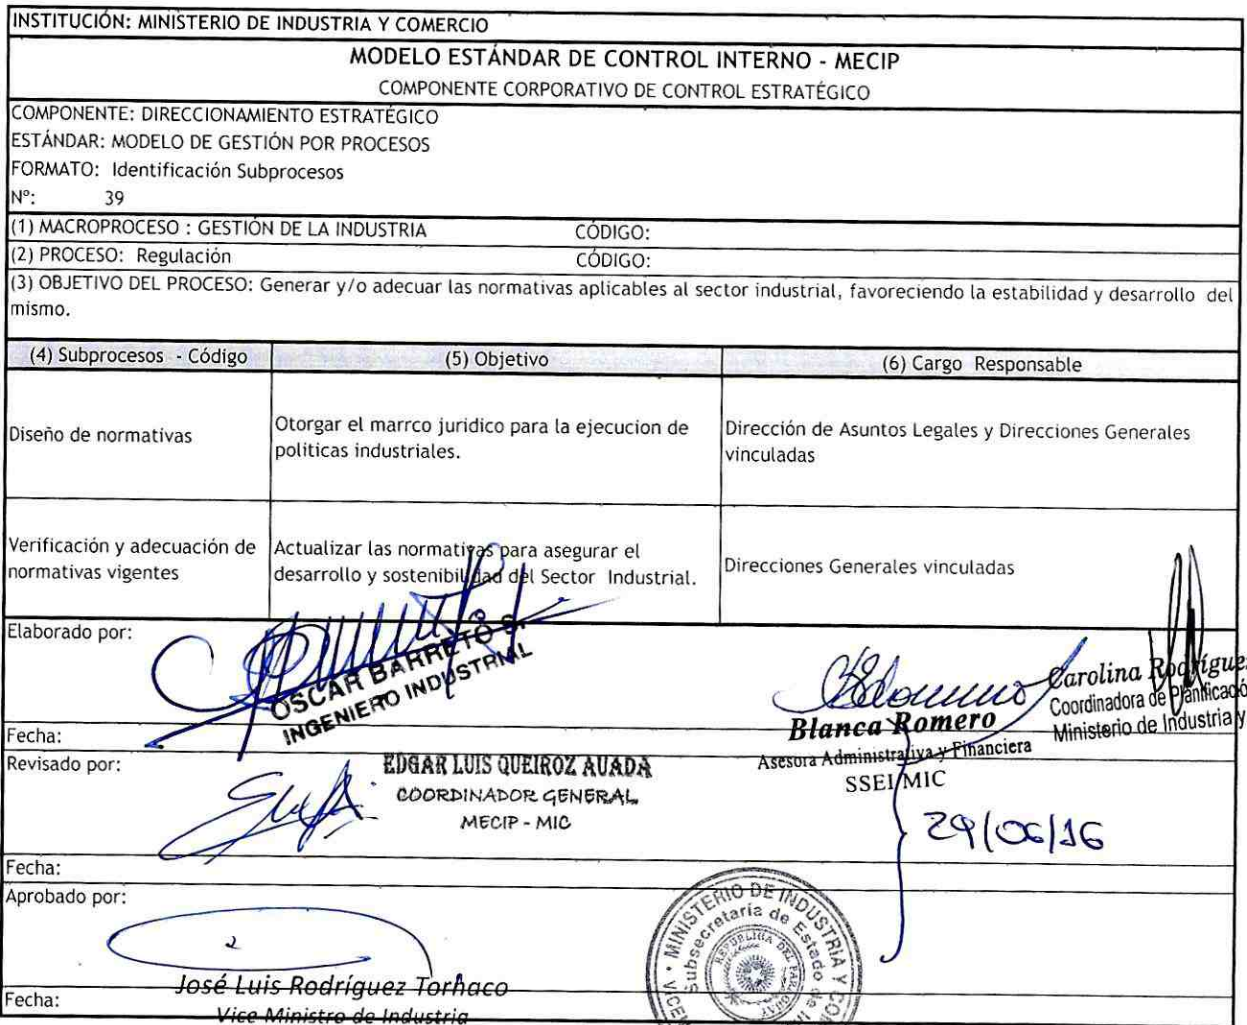 INSTITUCIÓN: MINISTERIO DE INDUSTRIA Y COMERCIO
MODELO ESTÁNDAR DE CONTROL INTERNO - MECIP
COMPONENTE CORPORATIVO DE CONTROL ESTRATÉGICO
COMPONENTE: DIRECCIONAMIENTO ESTRATÉGICO
ESTÁNDAR: MODELO DE GESTIÓN POR PROCESOS
FORMATO: Identificación Subprocesos
N°: 39
(1) MACROPROCESO : GESTIÓN DE LA INDUSTRIA CÓDIGO:
(2) PROCESO: Regulación CÓDIGO:
(3) OBJETIVO DEL PROCESO: Generar y/o adecuar las normativas aplicables al sector industrial, favoreciendo la estabilidad y desarrollo del
mismo.
(4) Subprocesos - Código (5) Objetivo (6) Cargo Responsable
Diseño de normativas
Otorgar el marrco juridico para la ejecucion de
politicas industriales.
Dirección de Asuntos Legales y Direcciones Generales
vinculadas
Verificación y adecuación de
normativas vigentes
Actualizar las normativas para asegurar el
desarrollo y sostenibilidad del Sector Industrial.
Direcciones Generales vinculadas
Elaborado por:
OSCAR BARRETO S.
INGENIERO INDUSTRIAL
Blanca Romero
Asesora Administrativa y Financiera
SSEI/MIC
Carolina Rodríguez
Coordinadora de Planificació
Ministerio de Industria y
Fecha:
Revisado por:
EDGAR LUIS QUEIROZ AUADA
COORDINADOR GENERAL
MECIP - MIC
29/06/16
Fecha:
Aprobado por:
José Luis Rodríguez Tornaco
Vice Ministro de Industria
Fecha:
MINISTERIO DE INDUSTRIA Y CO
Subsecretaría de Estado de I
REPUBLICA DEL PARAGUAY